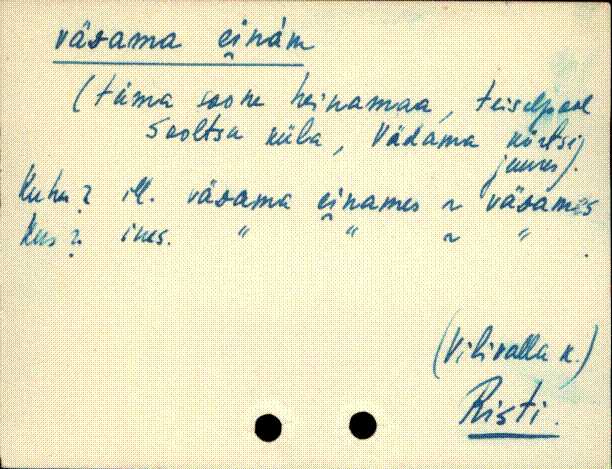 väsama einám
(tüma soone heinamaa, teiselpool
Sooltsu küla, Vädama kõrtsi
juures).
Kuhu? ill. väsama einames ~ väsames
Kus? ines. " " ~ " .
(Vilivalla k.)
Risti.